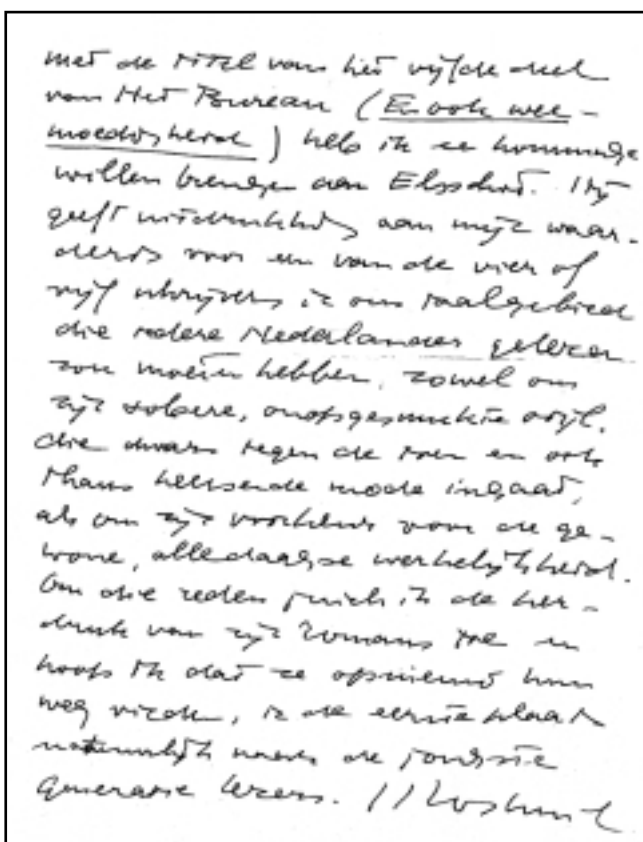 met de titel van het vijfde deel
van Het Bureau (En ook wee-
moedigheid) heb ik een hommage
willen brengen aan Elsschot. Hij
geeft uitdrukking aan mijn waar-
dering voor een van de vier of
vijf schrijvers in ons taalgebied
die iedere Nederlander gelezen
zou moeten hebben, zowel om
zijn sobere, onopgesmukte stijl,
die dwars tegen de toen en ook
thans heersende mode ingaat,
als om zijn voorkeur voor de ge-
wone, alledaagse werkelijkheid.
Om die reden juich ik de her-
druk van zijn romans toe en
hoop ik dat ze opnieuw hun
weg vinden, in de eerste plaats
natuurlijk naar de jongste
generatie lezers. JJVoskuil